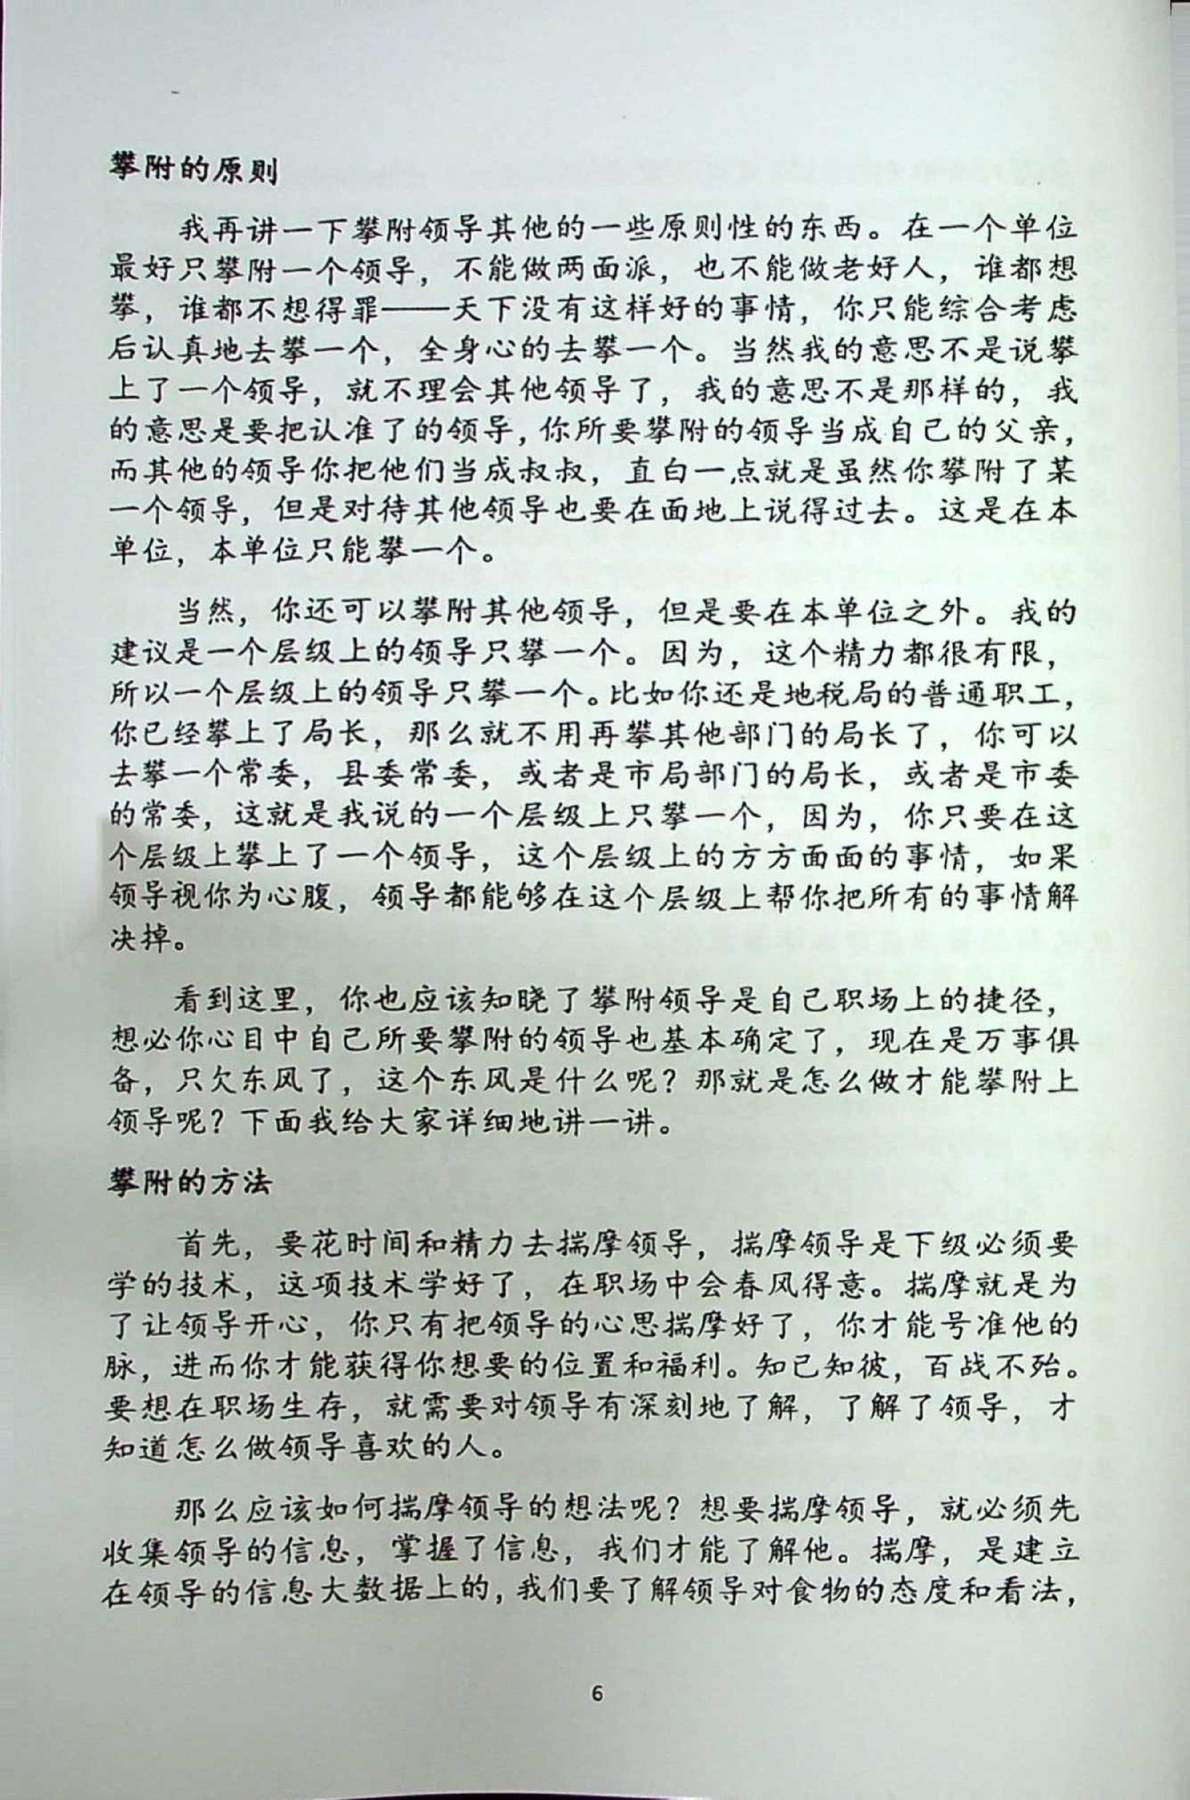 攀附的原则
我再讲一下攀附领导其他的一些原则性的东西。在一个单位
最好只攀附一个领导，不能做两面派，也不能做老好人，谁都想
攀，谁都不想得罪——天下没有这样好的事情，你只能综合考虑
后认真地去攀一个，全身心的去攀一个。当然我的意思不是说攀
上了一个领导，就不理会其他领导了，我的意思不是那样的，我
的意思是要把认准了的领导，你所要攀附的领导当成自己的父亲，
而其他的领导你把他们当成叔叔，直白一点就是虽然你攀附了某
一个领导，但是对待其他领导也要在面地上说得过去。这是在本
单位，本单位只能攀一个。
当然，你还可以攀附其他领导，但是要在本单位之外。我的
建议是一个层级上的领导只攀一个。因为，这个精力都很有限，
所以一个层级上的领导只攀一个。比如你还是地税局的普通职工，
你已经攀上了局长，那么就不用再攀其他部门的局长了，你可以
去攀一个常委，县委常委，或者是市局部门的局长，或者是市委
的常委，这就是我说的一个层级上只攀一个，因为，你只要在这
个层级上攀上了一个领导，这个层级上的方方面面的事情，如果
领导视你为心腹，领导都能够在这个层级上帮你把所有的事情解
决掉。
看到这里，你也应该知晓了攀附领导是自己职场上的捷径，
想必你心目中自己所要攀附的领导也基本确定了，现在是万事俱
备，只欠东风了，这个东风是什么呢？那就是怎么做才能攀附上
领导呢？下面我给大家详细地讲一讲。
攀附的方法
首先，要花时间和精力去揣摩领导，揣摩领导是下级必须要
学的技术，这项技术学好了，在职场中会春风得意。揣摩就是为
了让领导开心，你只有把领导的心思揣摩好了，你才能号准他的
脉，进而你才能获得你想要的位置和福利。知已知彼，百战不殆。
要想在职场生存，就需要对领导有深刻地了解，了解了领导，才
知道怎么做领导喜欢的人。
那么应该如何揣摩领导的想法呢？想要揣摩领导，就必须先
收集领导的信息，掌握了信息，我们才能了解他。揣摩，是建立
在领导的信息大数据上的，我们要了解领导对食物的态度和看法，
6